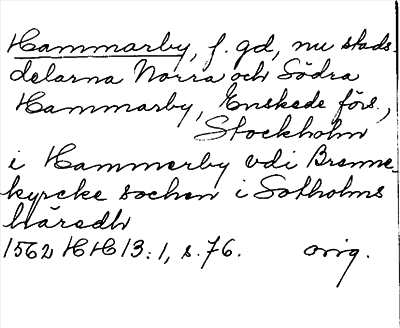 Hammarby, f. gd, nu stads-
delarna Norra och Södra
Hammarby, Enskede förs.,
Stockholm
i Hammerby vdi Brenne-
kyrcke sochen i Sotholms
häredh
1562 HH 13:1, s. 76. orig.